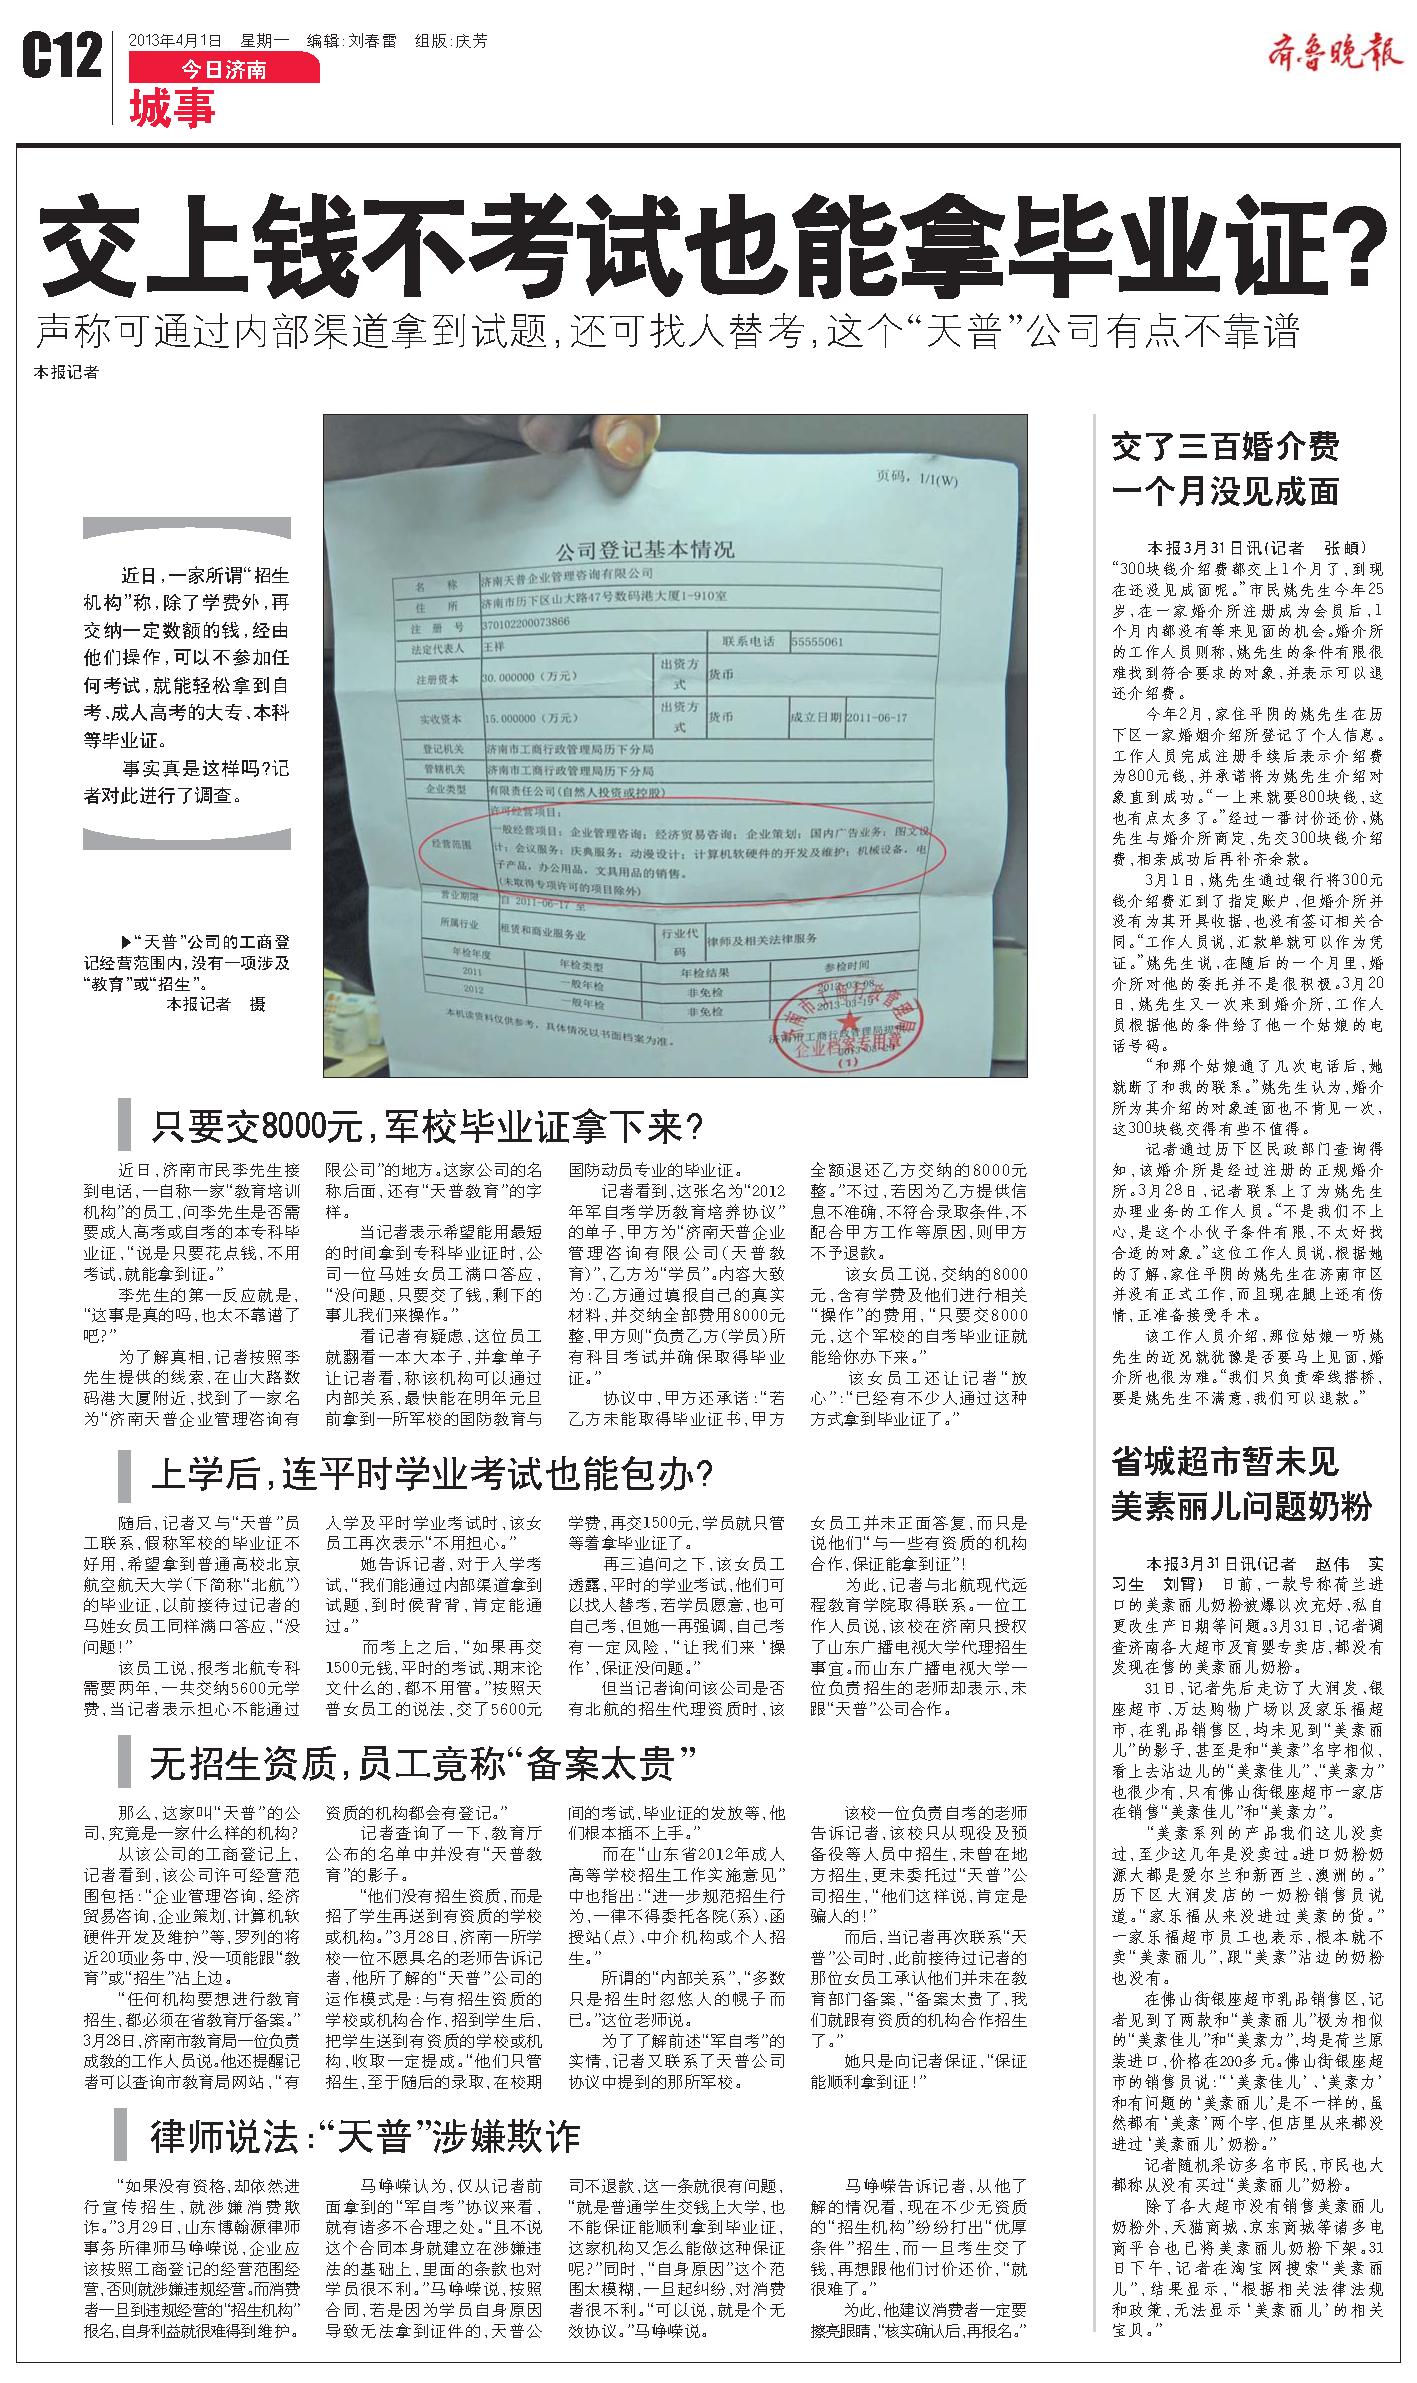 C12
2013年4月1日 星期一 编辑:刘春雷 组版:庆芳
今日济南
城事
齐鲁晚报
交上钱不考试也能拿毕业证?
声称可通过内部渠道拿到试题,还可找人替考,这个“天普”公司有点不靠谱
本报记者
近日,一家所谓“招生
机构”称,除了学费外,再
交纳一定数额的钱,经由
他们操作,可以不参加任
何考试,就能轻松拿到自
考、成人高考的大专、本科
等毕业证。
事实真是这样吗?记
者对此进行了调查。
▶“天普”公司的工商登
记经营范围内,没有一项涉及
“教育”或“招生”。
本报记者 摄
页码,1/1(W)
公司登记基本情况
名 称 济南天普企业管理咨询有限公司
住 所 济南市历下区山大路47号数码港大厦1-910室
注 册 号 370102200073866
法定代表人 王祥 联系电话 55555061
注册资本 30.000000(万元) 出资方式 货币
实收资本 15.000000(万元) 出资方式 货币 成立日期 2011-06-17
登记机关 济南市工商行政管理局历下分局
管辖机关 济南市工商行政管理局历下分局
企业类型 有限责任公司(自然人投资或控股)
许可经营项目:
一般经营项目:企业管理咨询;经济贸易咨询;企业策划;国内广告业务;图文设
经营范围 计;会议服务;庆典服务;动漫设计;计算机软硬件的开发及维护;机械设备、电
子产品、办公用品、文具用品的销售。
(未取得专项许可的项目除外)
营业期限 自 2011-06-17 至
所属行业 租赁和商业服务业 行业代码 律师及相关法律服务
年检年度 年检类型 年检结果 参检时间
2011 一般年检 非免检 2012-03-08
2012 一般年检 非免检 2013-03-19
本机读资料仅供参考,具体情况以书面档案为准。
济南市工商行政管理局
企业档案专用章
(1)
只要交8000元,军校毕业证拿下来?
近日,济南市民李先生接
到电话,一自称一家“教育培训
机构”的员工,问李先生是否需
要成人高考或自考的本专科毕
业证,“说是只要花点钱,不用
考试,就能拿到证。”
李先生的第一反应就是,
“这事是真的吗,也太不靠谱了
吧?”
为了解真相,记者按照李
先生提供的线索,在山大路数
码港大厦附近,找到了一家名
为“济南天普企业管理咨询有
限公司”的地方。这家公司的名
称后面,还有“天普教育”的字
样。
当记者表示希望能用最短
的时间拿到专科毕业证时,公
司一位马姓女员工满口答应,
“没问题,只要交了钱,剩下的
事儿我们来操作。”
看记者有疑虑,这位员工
就翻看一本大本子,并拿单子
让记者看,称该机构可以通过
内部关系,最快能在明年元旦
前拿到一所军校的国防教育与
国防动员专业的毕业证。
记者看到,这张名为“2012
年军自考学历教育培养协议”
的单子,甲方为“济南天普企业
管理咨询有限公司(天普教
育)”,乙方为“学员”。内容大致
为:乙方通过填报自己的真实
材料,并交纳全部费用8000元
整,甲方则“负责乙方(学员)所
有科目考试并确保取得毕业
证。”
协议中,甲方还承诺:“若
乙方未能取得毕业证书,甲方
全额退还乙方交纳的8000元
整。”不过,若因为乙方提供信
息不准确、不符合录取条件、不
配合甲方工作等原因,则甲方
不予退款。
该女员工说,交纳的8000
元,含有学费及他们进行相关
“操作”的费用,“只要交8000
元,这个军校的自考毕业证就
能给你办下来。”
该女员工还让记者“放
心”:“已经有不少人通过这种
方式拿到毕业证了。”
上学后,连平时学业考试也能包办?
随后,记者又与“天普”员
工联系,假称军校的毕业证不
好用,希望拿到普通高校北京
航空航天大学(下简称“北航”)
的毕业证,以前接待过记者的
马姓女员工同样满口答应,“没
问题!”
该员工说,报考北航专科
需要两年,一共交纳5600元学
费,当记者表示担心不能通过
入学及平时学业考试时,该女
员工再次表示“不用担心。”
她告诉记者,对于入学考
试,“我们能通过内部渠道拿到
试题,到时候背背,肯定能通
过。”
而考上之后,“如果再交
1500元钱,平时的考试,期末论
文什么的,都不用管。”按照天
普女员工的说法,交了5600元
学费,再交1500元,学员就只管
等着拿毕业证了。
再三追问之下,该女员工
透露,平时的学业考试,他们可
以找人替考,若学员愿意,也可
自己考,但她一再强调,自己考
有一定风险,“让我们来‘操
作’,保证没问题。”
但当记者询问该公司是否
有北航的招生代理资质时,该
女员工并未正面答复,而只是
说他们“与一些有资质的机构
合作,保证能拿到证”!
为此,记者与北航现代远
程教育学院取得联系。一位工
作人员说,该校在济南只授权
了山东广播电视大学代理招生
事宜。而山东广播电视大学一
位负责招生的老师却表示,未
跟“天普”公司合作。
无招生资质,员工竟称“备案太贵”
那么,这家叫“天普”的公
司,究竟是一家什么样的机构?
从该公司的工商登记上,
记者看到,该公司许可经营范
围包括:“企业管理咨询,经济
贸易咨询,企业策划,计算机软
硬件开发及维护”等,罗列的将
近20项业务中,没一项能跟“教
育”或“招生”沾上边。
“任何机构要想进行教育
招生,都必须在省教育厅备案。”
3月28日,济南市教育局一位负责
成教的工作人员说。他还提醒记
者可以查询市教育局网站,“有
资质的机构都会有登记。”
记者查询了一下,教育厅
公布的名单中并没有“天普教
育”的影子。
“他们没有招生资质,而是
招了学生再送到有资质的学校
或机构。”3月28日,济南一所学
校一位不愿具名的老师告诉记
者,他所了解的“天普”公司的
运作模式是:与有招生资质的
学校或机构合作,招到学生后,
把学生送到有资质的学校或机
构,收取一定提成。“他们只管
招生,至于随后的录取,在校期
间的考试,毕业证的发放等,他
们根本插不上手。”
而在“山东省2012年成人
高等学校招生工作实施意见”
中也指出:“进一步规范招生行
为,一律不得委托各院(系)、函
授站(点)、中介机构或个人招
生。”
所谓的“内部关系”,“多数
只是招生时忽悠人的幌子而
已。”这位老师说。
为了了解前述“军自考”的
实情,记者又联系了天普公司
协议中提到的那所军校。
该校一位负责自考的老师
告诉记者,该校只从现役及预
备役等人员中招生,未曾在地
方招生,更未委托过“天普”公
司招生,“他们这样说,肯定是
骗人的!”
而后,当记者再次联系“天
普”公司时,此前接待过记者的
那位女员工承认他们并未在教
育部门备案,“备案太贵了,我
们就跟有资质的机构合作招生
了。”
她只是向记者保证,“保证
能顺利拿到证!”
律师说法:“天普”涉嫌欺诈
“如果没有资格,却依然进
行宣传招生,就涉嫌消费欺
诈。”3月29日,山东博翰源律师
事务所律师马峥嵘说,企业应
该按照工商登记的经营范围经
营,否则就涉嫌违规经营。而消费
者一旦到违规经营的“招生机构”
报名,自身利益就很难得到维护。
马峥嵘认为,仅从记者前
面拿到的“军自考”协议来看,
就有诸多不合理之处。“且不说
这个合同本身就建立在涉嫌违
法的基础上,里面的条款也对
学员很不利。”马峥嵘说,按照
合同,若是因为学员自身原因
导致无法拿到证件的,天普公
司不退款,这一条就很有问题,
“就是普通学生交钱上大学,也
不能保证能顺利拿到毕业证,
这家机构又怎么能做这种保证
呢?”同时,“自身原因”这个范
围太模糊,一旦起纠纷,对消费
者很不利。“可以说,就是个无
效协议。”马峥嵘说。
马峥嵘告诉记者,从他了
解的情况看,现在不少无资质
的“招生机构”纷纷打出“优厚
条件”招生,而一旦考生交了
钱,再想跟他们讨价还价,“就
很难了。”
为此,他建议消费者一定要
擦亮眼睛,“核实确认后,再报名。”
交了三百婚介费
一个月没见成面
本报3月31日讯(记者 张頔)
“300块钱介绍费都交上1个月了,到现
在还没见成面呢。”市民姚先生今年25
岁,在一家婚介所注册成为会员后,1
个月内都没有等来见面的机会。婚介所
的工作人员则称,姚先生的条件有限很
难找到符合要求的对象,并表示可以退
还介绍费。
今年2月,家住平阴的姚先生在历
下区一家婚姻介绍所登记了个人信息。
工作人员完成注册手续后表示介绍费
为800元钱,并承诺将为姚先生介绍对
象直到成功。“一上来就要800块钱,这
也有点太多了。”经过一番讨价还价,姚
先生与婚介所商定,先交300块钱介绍
费,相亲成功后再补齐余款。
3月1日,姚先生通过银行将300元
钱介绍费汇到了指定账户,但婚介所并
没有为其开具收据,也没有签订相关合
同。“工作人员说,汇款单就可以作为凭
证。”姚先生说,在随后的一个月里,婚
介所对他的委托并不是很积极。3月20
日,姚先生又一次来到婚介所,工作人
员根据他的条件给了他一个姑娘的电
话号码。
“和那个姑娘通了几次电话后,她
就断了和我的联系。”姚先生认为,婚介
所为其介绍的对象连面也不肯见一次,
这300块钱交得有些不值得。
记者通过历下区民政部门查询得
知,该婚介所是经过注册的正规婚介
所。3月28日,记者联系上了为姚先生
办理业务的工作人员。“不是我们不上
心,是这个小伙子条件有限,不太好找
合适的对象。”这位工作人员说,根据她
的了解,家住平阴的姚先生在济南市区
并没有正式工作,而且现在腿上还有伤
情,正准备接受手术。
该工作人员介绍,那位姑娘一听姚
先生的近况就犹豫是否要马上见面,婚
介所也很为难。“我们只负责牵线搭桥,
要是姚先生不满意,我们可以退款。”
省城超市暂未见
美素丽儿问题奶粉
本报3月31日讯(记者 赵伟 实
习生 刘霄) 日前,一款号称荷兰进
口的美素丽儿奶粉被爆以次充好、私自
更改生产日期等问题。3月31日,记者调
查济南各大超市及育婴专卖店,都没有
发现在售的美素丽儿奶粉。
31日,记者先后走访了大润发、银
座超市、万达购物广场以及家乐福超
市,在乳品销售区,均未见到“美素丽
儿”的影子,甚至是和“美素”名字相似,
看上去沾边儿的“美素佳儿”、“美素力”
也很少有,只有佛山街银座超市一家店
在销售“美素佳儿”和“美素力”。
“美素系列的产品我们这儿没卖
过,至少这几年是没卖过。进口奶粉奶
源大都是爱尔兰和新西兰、澳洲的。”
历下区大润发店的一奶粉销售员说
道。“家乐福从来没进过美素的货。”
一家乐福超市员工也表示,根本就不
卖“美素丽儿”,跟“美素”沾边的奶粉
也没有。
在佛山街银座超市乳品销售区,记
者见到了两款和“美素丽儿”极为相似
的“美素佳儿”和“美素力”,均是荷兰原
装进口,价格在200多元。佛山街银座超
市的销售员说:“‘美素佳儿’、‘美素力’
和有问题的‘美素丽儿’是不一样的,虽
然都有‘美素’两个字,但店里从来都没
进过‘美素丽儿’奶粉。”
记者随机采访多名市民,市民也大
都称从没有买过“美素丽儿”奶粉。
除了各大超市没有销售美素丽儿
奶粉外,天猫商城、京东商城等诸多电
商平台也已将美素丽儿奶粉下架。31
日下午,记者在淘宝网搜索“美素丽
儿”,结果显示,“根据相关法律法规
和政策,无法显示‘美素丽儿’的相关
宝贝。”